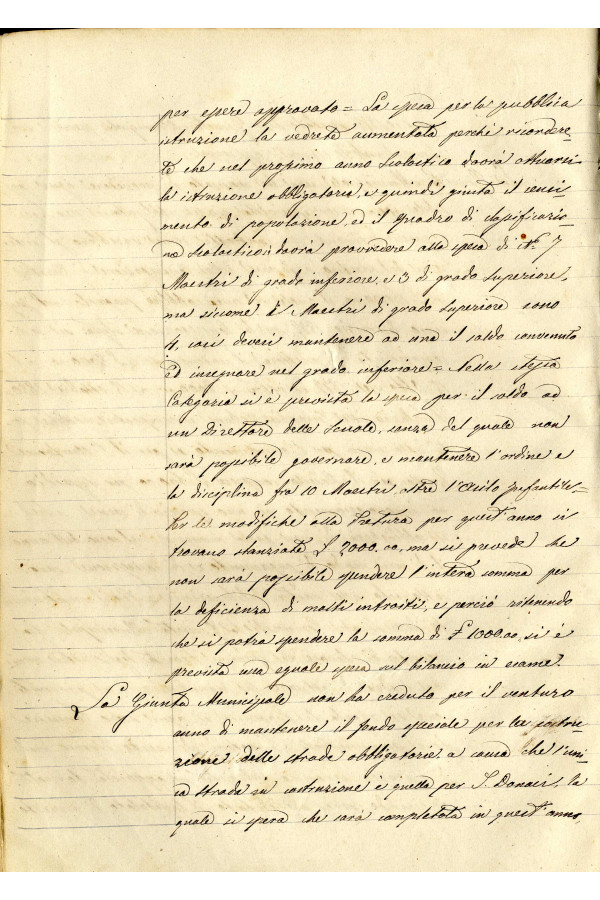 per essere approvato = La spesa per la pubblica
istruzione la vedrete aumentata perchè ricordere=
te che nel prossimo anno scolastico dovrà attuarsi
la istruzione obbligatoria, e quindi giusta il censi
mento di popolazione, ed il quadro di classificazio
ne scolastica dovrà provvedere alla spesa di N° 7
Maestri di grado inferiore, e 3 di grado superiore,
ma siccome i Maestri di grado superiore sono
4, così devesi mantenere ad uno il soldo convenuto
ed insegnare nel grado inferiore = Nella stessa
Categoria si è prevista la spesa per il soldo ad
un Direttore delle Scuole, senza del quale non
sarà possibile governare, e mantenere l'ordine e
la disciplina fra 10 Maestri, oltre l'Asilo Infantile=
Per le modifiche alla Pretura per quest'anno si
trovano stanziate £ 2000.00, ma si prevede che
non sarà possibile spendere l'intera somma per
la deficienza di molti introiti, e perciò ritenendo
che si potrà spendere la somma di £ 1000.00, si è
prevista una eguale spesa sul bilancio in esame.
La Giunta Municipale non ha creduto per il venturo
anno di mantenere il fondo speciale per la costru=
zione delle strade obbligatorie, a causa che l'uni
ca strada in costruzione è quella per S. Donaci, la
quale si spera che sarà completata in quest'anno,